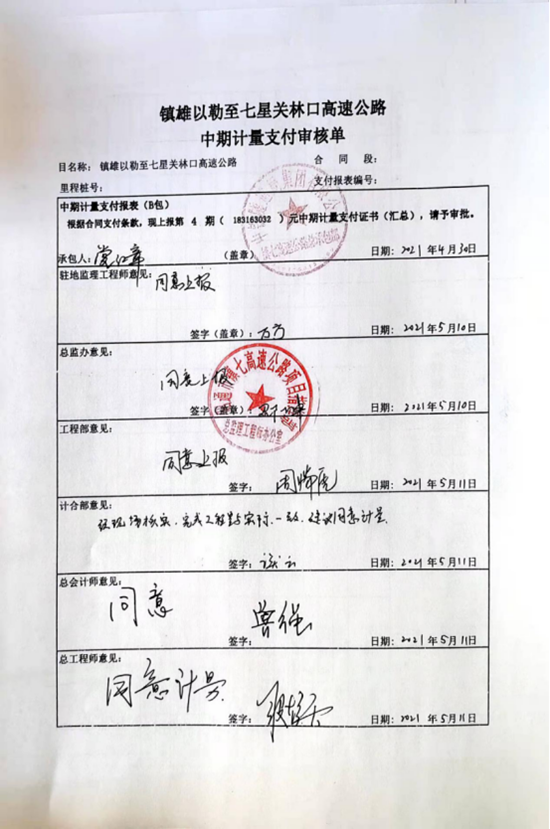 镇雄以勒至七星关林口高速公路
中期计量支付审核单
目名称：镇雄以勒至七星关林口高速公路 合同段：
里程桩号： 支付报表编号：
中期计量支付报表（B包）
根据合同支付条款，现上报第 4 期（ 183163032 ）元中期计量支付证书（汇总），请予审批。
承包人： （盖章） 日期：2021年4月30日
驻地监理工程师意见：
同意上报
签字（盖章）：万方 日期：2021年5月10日
总监办意见：
同意上报
签字（盖章）： 日期：2021年5月10日
镇七高速公路项目
总监理工程师办公室
工程部意见：
同意上报
签字： 日期：2021年5月11日
计合部意见：
经现场核实，完成工程量与实际一致，建议同意计量
签字： 日期：2021年5月11日
总会计师意见：
同意
签字：曾强 日期：2021年5月11日
总工程师意见：
同意计量
签字： 日期：2021年5月11日